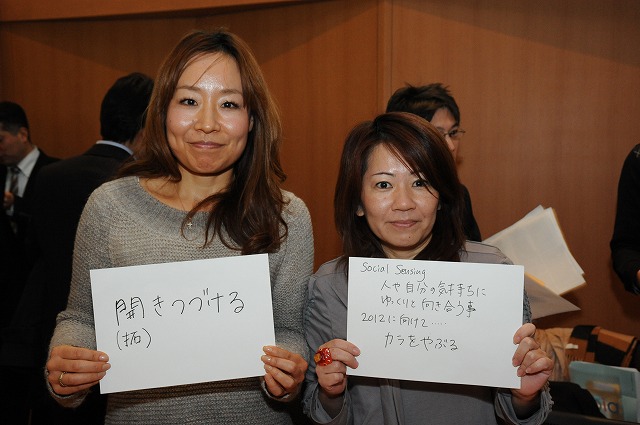 開きつづける
(拓)
Social Sensing
人や自分の気持ちに
ゆっくりと向き合う事
2012に向けて.....
カラをやぶる